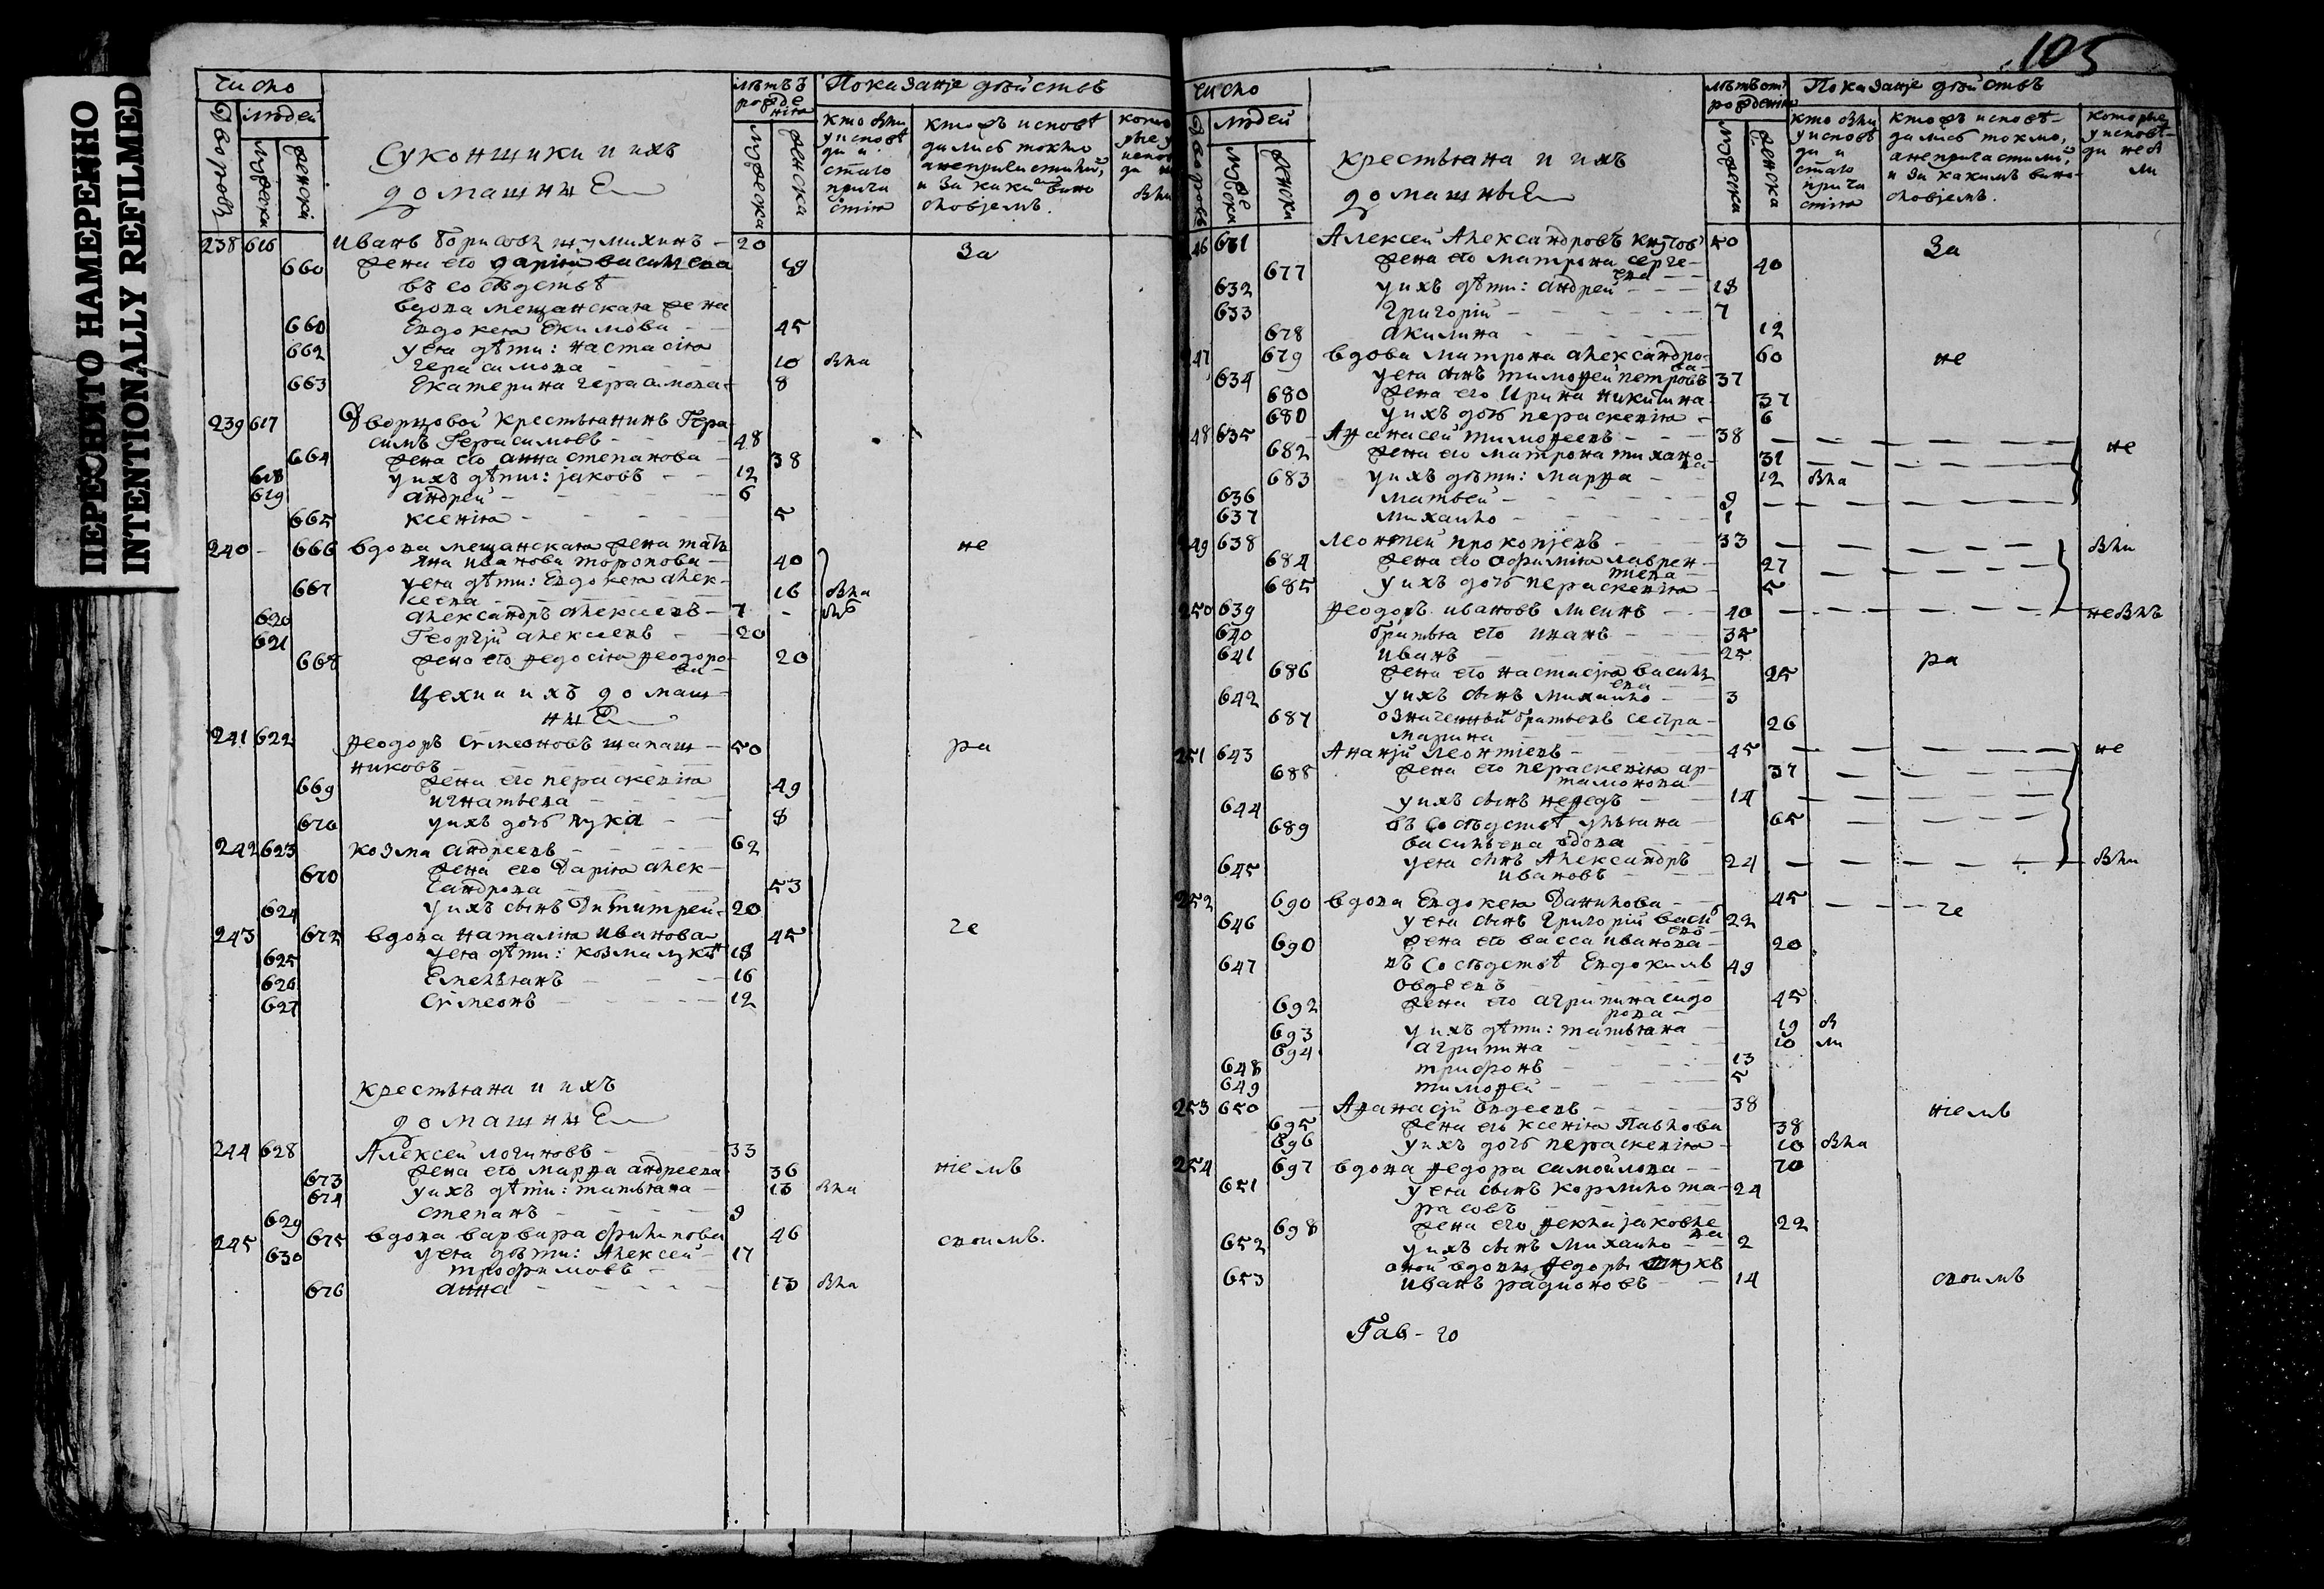 ПЕРЕСНЯТО НАМЕРЕННО
INTENTIONALLY REFILMED
число
Дворовъ
людей
мужеска
женска
Суконщики и ихъ
домашние
лѣтъ
рожде
ния
мужеска
женска
Показание действъ
кто были
у исповѣ
ди и
стаго
прича
стия
ктожъ исповѣ
дались токмо
а не причастились,
и за какимъ вино
словiемъ.
238 616 Иванъ Борисовъ 20
За
660 жена его дарiя васильева 19
въ соседствѣ
вдова мещанская жена
660 Евдокея Екимова 45
662 у ея дѣти: настасiя
герасимова 10 бы
663 Екатерина герасимова 8
239 617 Дворцовой крестьянинъ Гера
симъ Герасимовъ 48
664 жена его анна степанова 38
618 у ихъ дѣти: јаковъ 12
619 андрей 6
665 ксения 5
240 666 вдова мещанская жена тать
яна иванова торопова 40
не
667 у ея дѣти: Евдокея алек
сеева 16 бы
620 александръ алексеевъ 7
621 Георгiй алексеевъ 20
668 жена его федосiя феодоро
ва 20
Цехи и ихъ домаш
ние
241 622 феодоръ Симеоновъ шапаш
никовъ 50
ра
669 жена его параскевiя
игнатьева 49
670 у ихъ дочь лукiа 8
242 623 козма андреевъ 62
670 жена его Дарiя алек
сандрова 53
624 у ихъ сынъ Димитрей 20
243 672 вдова наталiя иванова 45
че
625 у ея дѣти: козма 18
626 Емельянъ 16
627 Симеонъ 12
крестьяна и ихъ
домашние
244 628 Алексей логиновъ 33
673 жена его марфа андреева 36
нiемъ
674 у ихъ дѣти: татьяна 13 бы
629 степанъ 9
245 675 вдова варвара филипова 46
своимъ.
630 у ея дѣти: Алексей
трофимовъ 17
676 анна 13 бы
105
число
Дворовъ
людей
мужеска
женска
крестьяна и ихъ
домашные
лѣтъ от
рождения
мужеска
женска
Показание действъ
кто были
у исповѣ
ди и
стаго
прича
стия
ктожъ исповѣ
дались токмо,
а не причастились,
и за какимъ вино
словiемъ.
которые
у исповѣ
ди не бы
ли
46 631 Алексей Александровъ 50
За
677 жена его матрона серге
ева 40
632 у ихъ дѣти: андрей 18
633 Григорiй 7
678 акилина 12
247 679 вдова матрона александро
ва 60
не
634 у ея сынъ тимофей петровъ 37
680 жена его Ирина никитина 37
680 у ихъ дочь параскевiя 6
48 635 Афанасей тимофеевъ 38
не
682 жена его матрона тихано
ва 31
683 у ихъ дѣти: марфа 12 бы
636 матвей 9
637 михаило 1
249 638 леонтей прокопiевъ 33
бы
684 жена его офимiя лаврен
тева 27
685 у ихъ дочь параскевiя 5
250 639 феодоръ ивановъ лисинъ 40
640 братья его иванъ 35
641 иванъ 25
ра
686 жена его настасiя василь
ева 25
642 у ихъ сынъ михаило 3
687 означенныхъ братьевъ сестра
марина 26
251 643 Ананiй леонтiевъ 45
не
688 жена его параскевiя ар
тамонова 37
644 у ихъ сынъ нефедъ 14
689 въ соседствѣ ульяна
васильева вдова 65
645 у ея сынъ Александръ
ивановъ 24
бы
252 690 вдова Евдокея Данилова 45
че
646 у ея сынъ Григорiй васи
левъ 22
690 жена его васса иванова 20
647 въ соседствѣ Евдокимъ 49
692 жена его агрипина сидо
рова 45
693 у ихъ дѣти: татьяна 19 бы
694 агрипина 10 ли
648 трифонъ 13
649 тимофей 5
253 650 Афанасiй Авдеевъ 38
нiемъ
695 жена его ксенiя Павлова 38
696 у ихъ дочь параскевiя 10 бы
254 697 вдова федора самойлова 70
651 у ея сынъ корнило та
расовъ 24
698 жена его фекла јаковле
ва 22
652 у ихъ сынъ михаило 2
оной вдовы федоры внукъ
653 иванъ радионовъ 14
своимъ